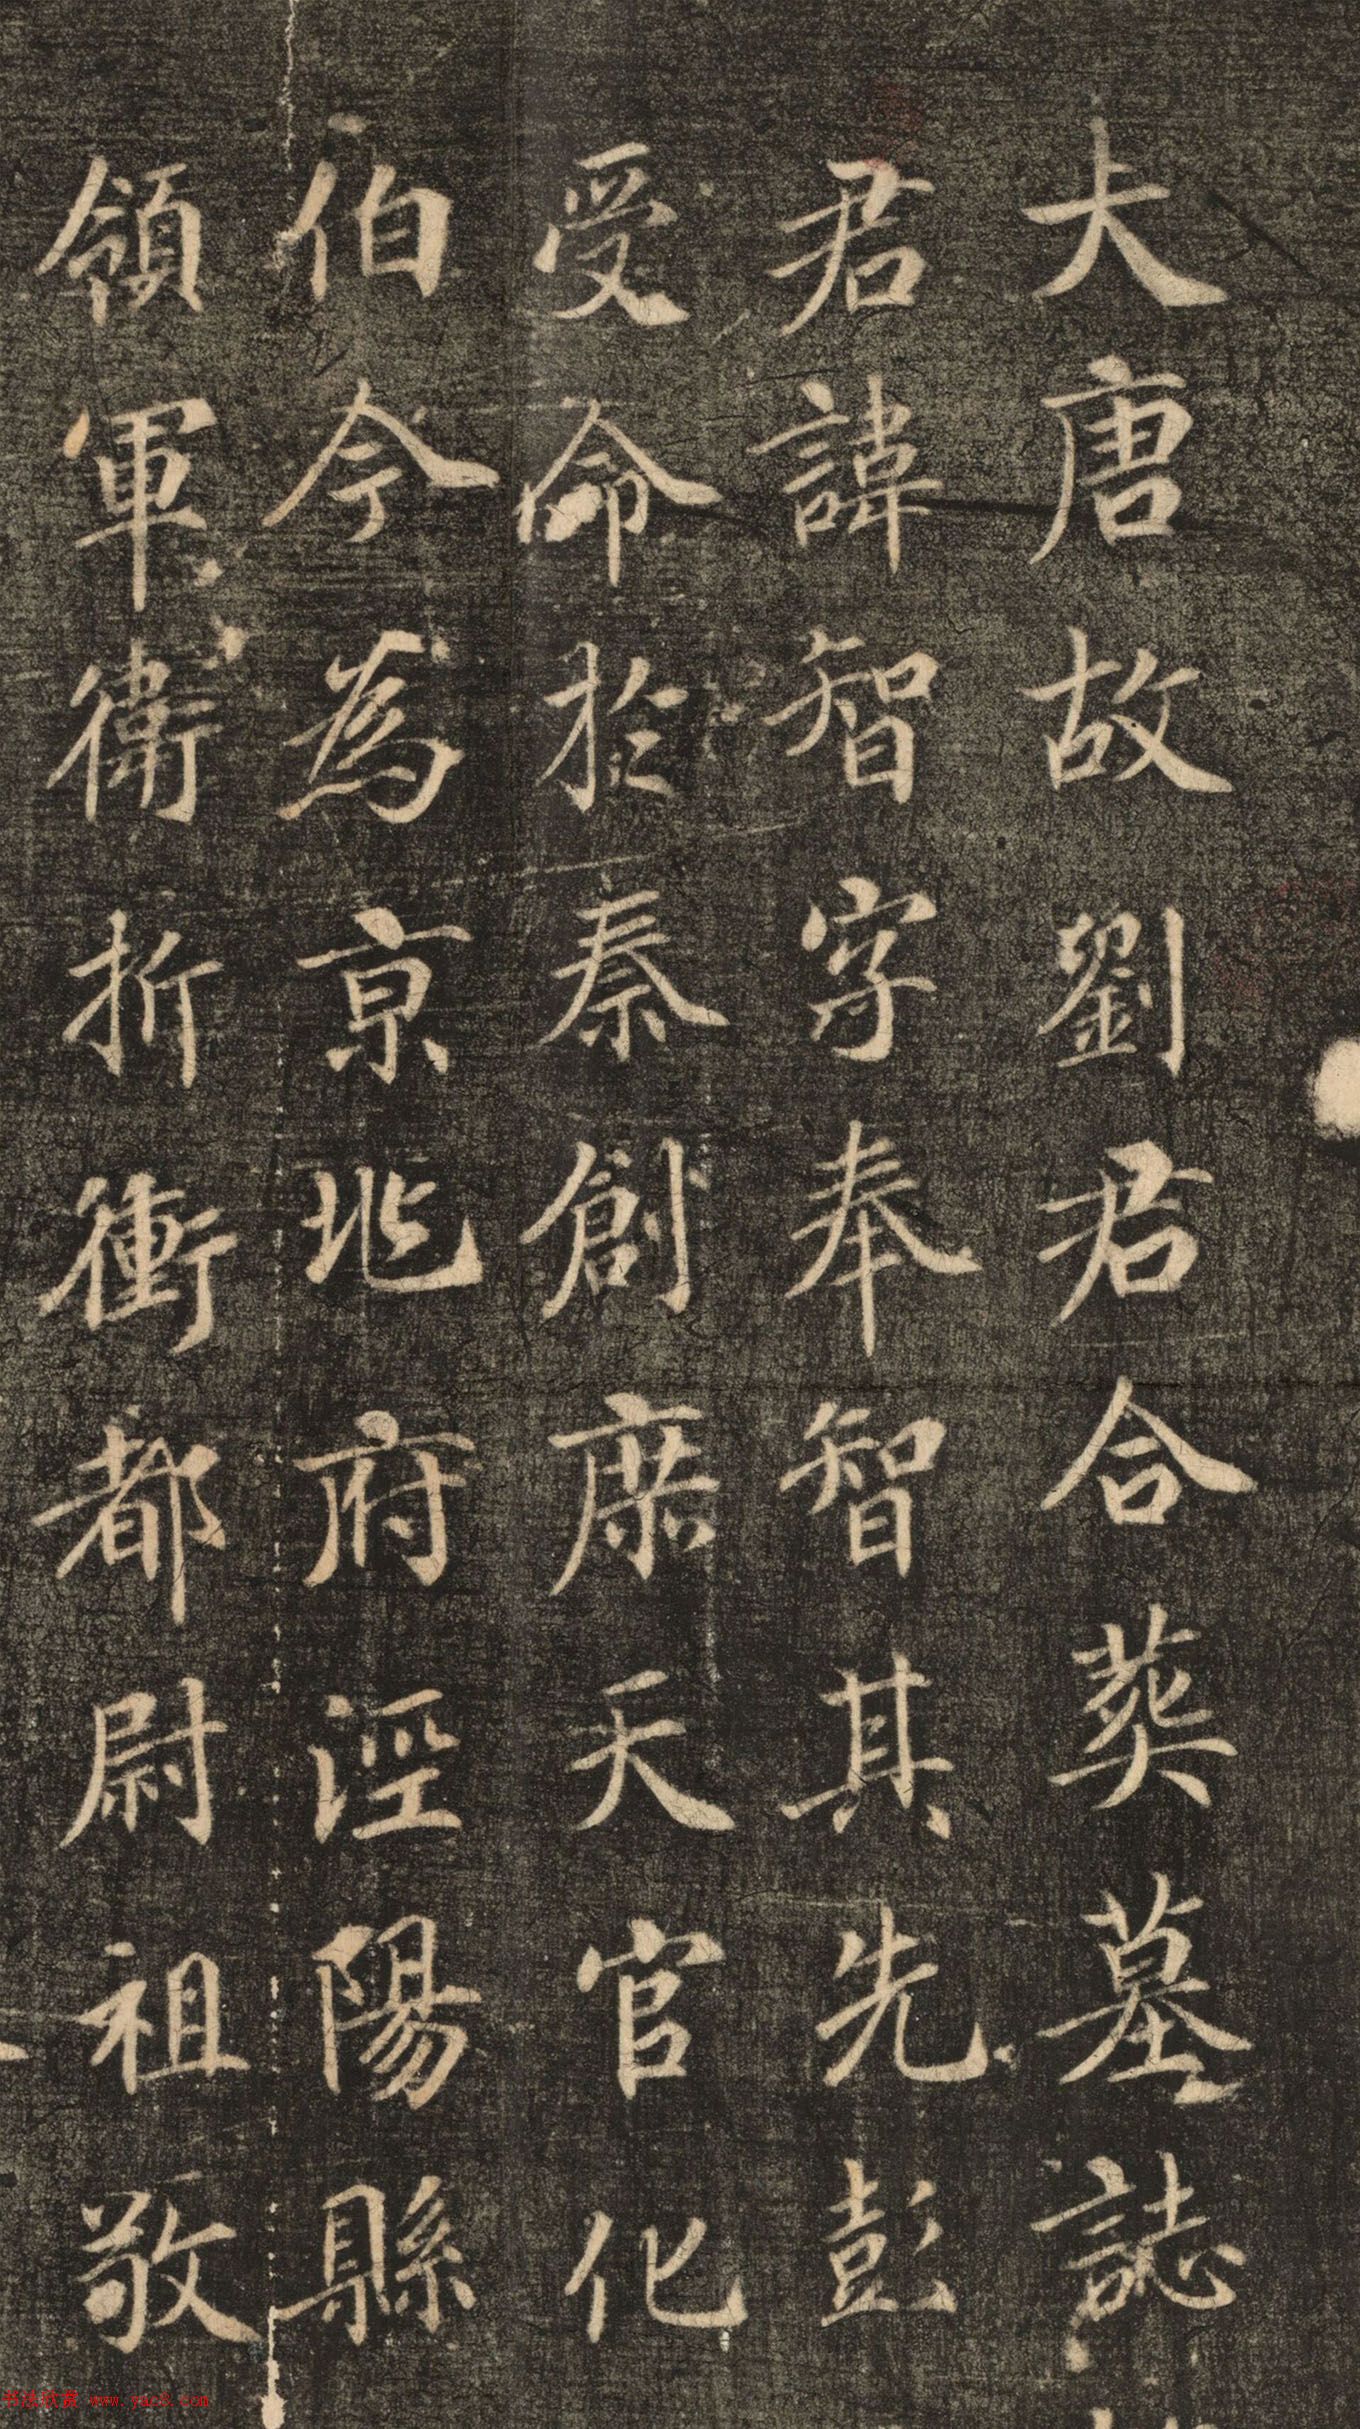 大唐故劉君合葬墓誌
君諱智字奉智其先彭
受命於秦創庶天官化
伯今為京兆府涇陽縣
領軍衛折衝都尉祖敬
书法欣赏 www.yac8.com